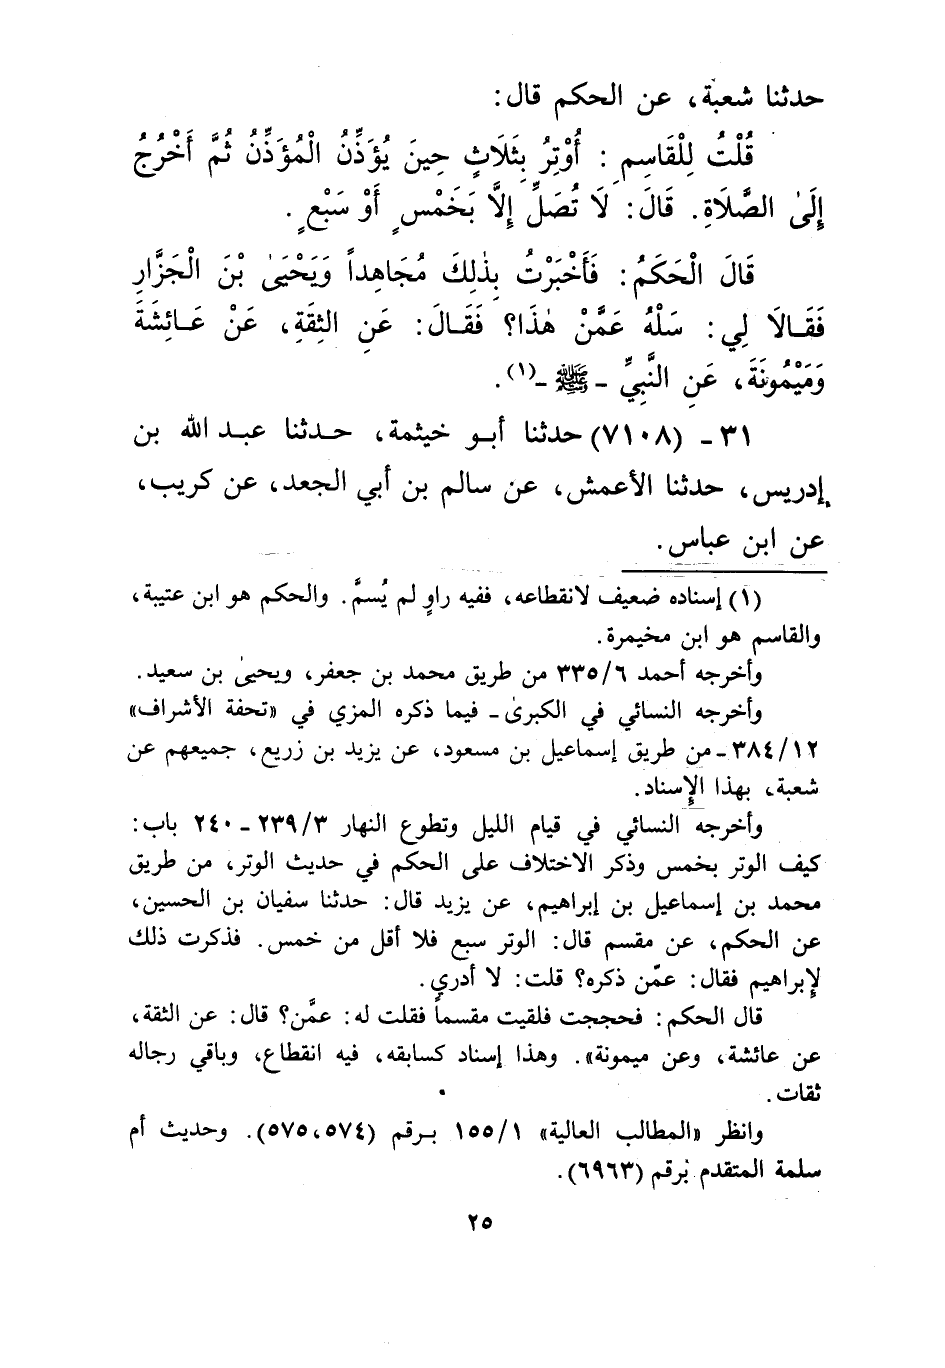 حدثنا شعبة، عن الحكم قال:
قُلْتُ لِلْقَاسِمِ: أُوْتِرُ بِثَلَاثٍ حِينَ يُؤَذِّنُ الْمُؤَذِّنُ ثُمَّ أَخْرُجُ
إِلَىٰ الصَّلَاةِ. قَالَ: لَا تُصَلِّ إِلَّا بَخَمْسٍ أَوْ سَبْعٍ.
قَالَ الْحَكَمُ: فَأَخْبَرْتُ بِذٰلِكَ مُجَاهِداً وَيَحْيَىٰ بْنَ الْجَزَّارِ
فَقَالَا لِي: سَلْهُ عَمَّنْ هٰذَا؟ فَقَالَ: عَنِ الثِقَةِ، عَنْ عَائِشَةَ
وَمَيْمُونَةَ، عَنِ النَّبِيِّ - ﷺ -(١).
٣١ - (٧١٠٨) حدثنا أبو خيثمة، حدثنا عبد الله بن
إدريس، حدثنا الأعمش، عن سالم بن أبي الجعد، عن كريب،
عن ابن عباس.
(١) إسناده ضعيف لانقطاعه، ففيه راوٍ لم يُسمَّ. والحكم هو ابن عتيبة،
والقاسم هو ابن مخيمرة.
وأخرجه أحمد ٣٣٥/٦ من طريق محمد بن جعفر، ويحيىٰ بن سعيد.
وأخرجه النسائي في الكبرىٰ - فيما ذكره المزي في «تحفة الأشراف»
٣٨٤/١٢ - من طريق إسماعيل بن مسعود، عن يزيد بن زريع، جميعهم عن
شعبة، بهذا الإسناد.
وأخرجه النسائي في قيام الليل وتطوع النهار ٢٣٩/٣ - ٢٤٠ باب:
كيف الوتر بخمس وذكر الاختلاف على الحكم في حديث الوتر، من طريق
محمد بن إسماعيل بن إبراهيم، عن يزيد قال: حدثنا سفيان بن الحسين،
عن الحكم، عن مقسم قال: الوتر سبع فلا أقل من خمس. فذكرت ذلك
لإبراهيم فقال: عمّن ذكره؟ قلت: لا أدري.
قال الحكم: فحججت فلقيت مقسماً فقلت له: عمَّن؟ قال: عن الثقة،
عن عائشة، وعن ميمونة». وهذا إسناد كسابقه، فيه انقطاع، وباقي رجاله
ثقات.
وانظر «المطالب العالية» ١٥٥/١ برقم (٥٧٤، ٥٧٥). وحديث أم
سلمة المتقدم برقم (٦٩٦٣).
٢٥